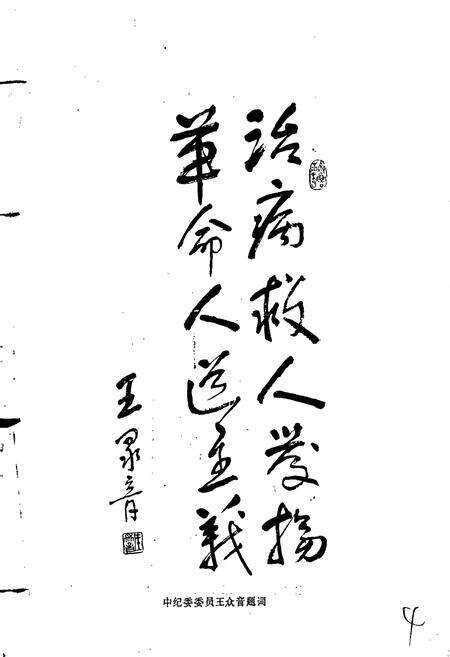 治病救人發揚
革命人道主義
王眾音
中纪委委员王众音题词
4